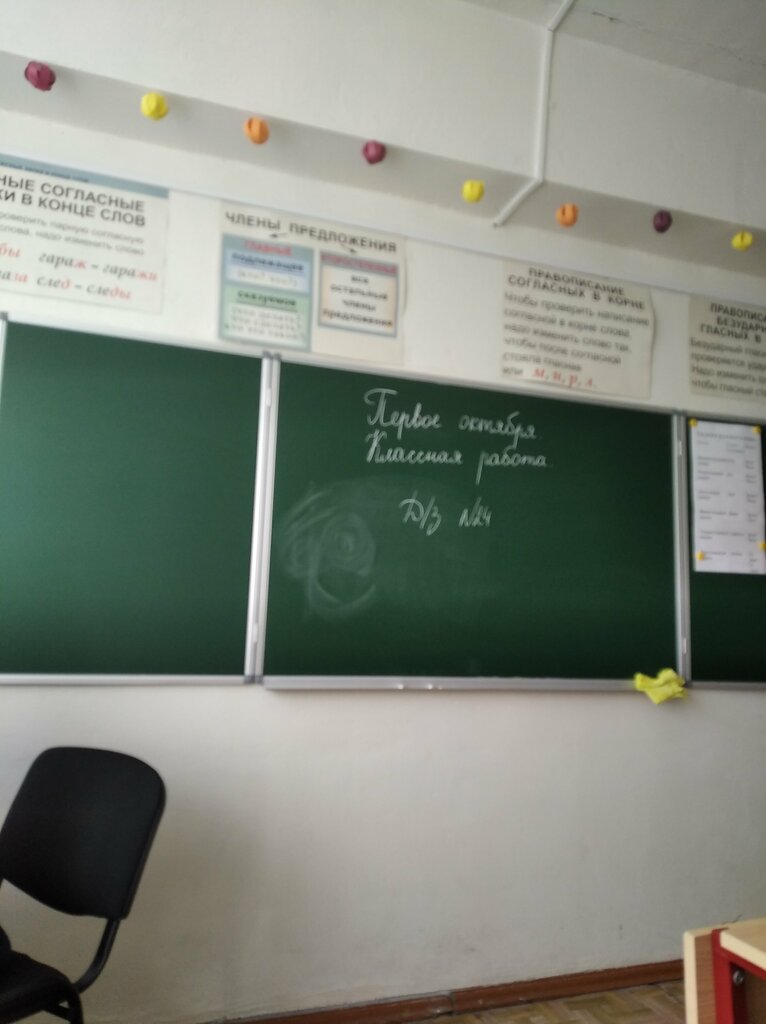 НЫЕ СОГЛАСНЫЕ
КИ В КОНЦЕ СЛОВ
проверить парную согласную
слова, надо изменить слово
бы гараж – гаражи
аза след – следы
ЧЛЕНЫ ПРЕДЛОЖЕНИЯ
ГЛАВНЫЕ
подлежащее
(кто? что?)
сказуемое
что делать?
что сделать?
ВТОРОСТЕПЕННЫЕ
все
остальные
члены
предложения
ПРАВОПИСАНИЕ
СОГЛАСНЫХ В КОРНЕ
Чтобы проверить написание
согласной в корне слова,
надо изменить слово так,
чтобы после согласной
стояла гласная
или м, н, р, л.
ПРАВОПИСА
БЕЗУДАРН
ГЛАСНЫХ В
Безударный гласн
проверяется удар
Надо изменить
чтобы гласный ст
Первое октября.
Классная работа.
Д/з №24